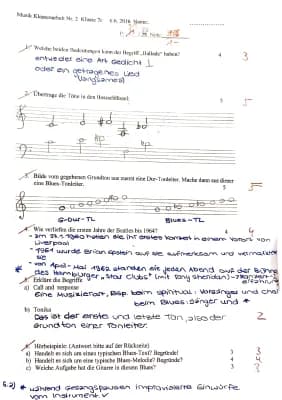 Musik Klassenarbeit Nr. 2 Klasse 7c 6.6.2016 Name:
1. Welche beiden Bedeutungen kann der Begriff „Ballade“ haben? 4 3
entweder eine Art Gedicht
oder ein getragenes Lied
(langsames)
2. Übertrage die Töne in den Bassschlüssel: 5
3. Bilde vom gegebenen Grundton aus zuerst eine Dur-Tonleiter. Mache dann aus dieser
eine Blues-Tonleiter.
G-Dur-TL Blues-TL
4. Wie verliefen die ersten Jahre der Beatles bis 1964? 4
Liverpool
• 1961 wurde Brian Epstein auf sie aufmerksam und
sie
• von April - Mai 1962 standen sie jeden Abend auf der Bühne
des Hamburger „Star Clubs“ (mit Tony Sheridan)
5. Erkläre die Begriffe
a) Call and response
Eine Musizierart, Bsp. beim Spiritual: Vorsänger und Chor
beim Blues: Sänger und *
b) Tonika
Das ist der erste und letzte Ton, also der
Grundton einer Tonleiter. 2
6. Hörbeispiele: (Antwort bitte auf der Rückseite)
a) Handelt es sich um einen typischen Blues-Text? Begründe! 3 3
b) Handelt es sich um eine typische Blues-Melodie? Begründe! 4
c) Welche Aufgabe hat die Gitarre in diesem Blues? 3
5.a) * während Gesangspausen improvisierte Einwürfe
vom Instrument